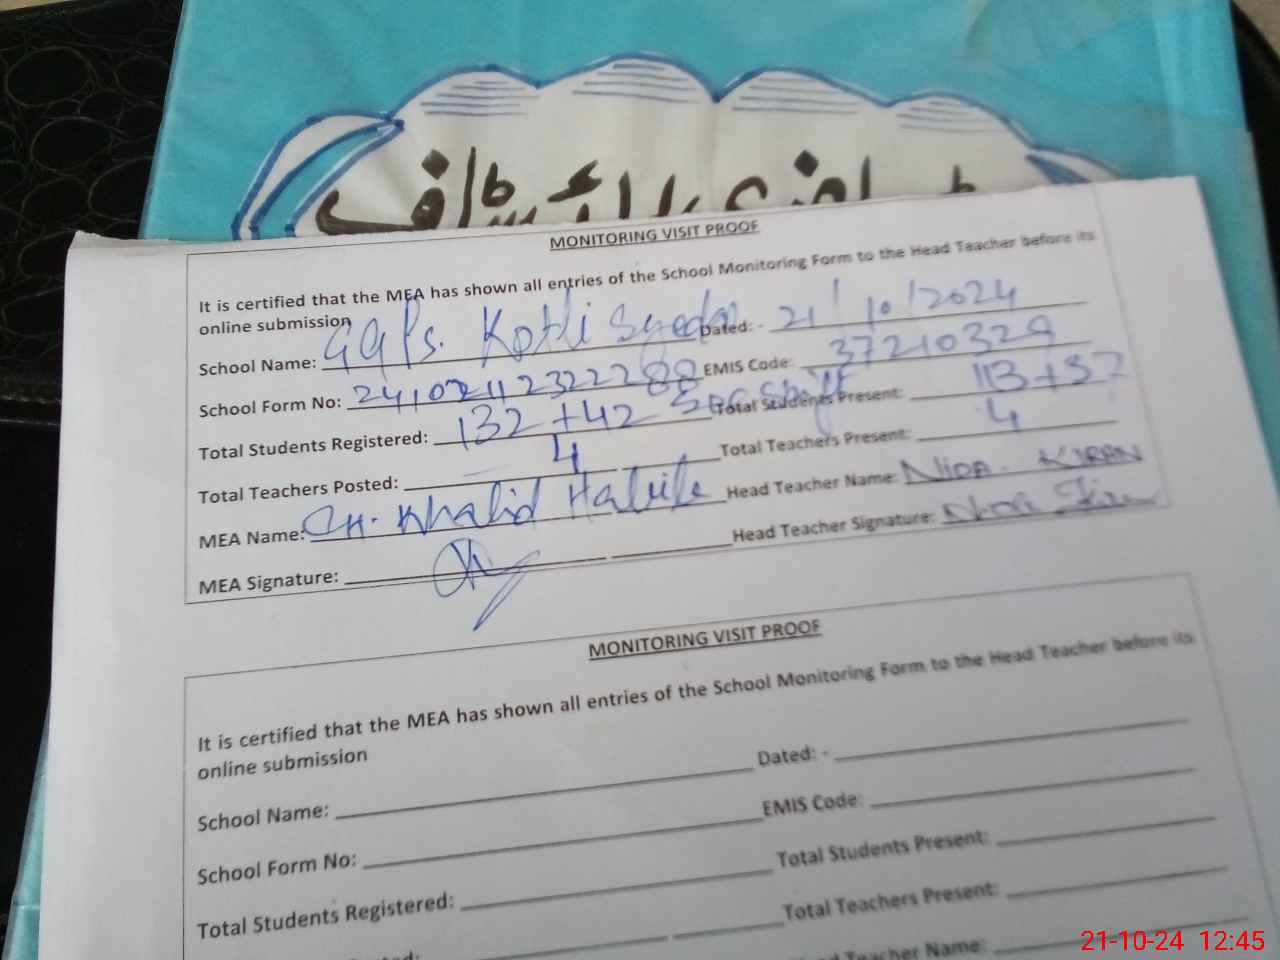 برائے سٹاف
MONITORING VISIT PROOF
It is certified that the MEA has shown all entries of the School Monitoring Form to the Head Teacher before its
online submission
School Name: GGPS. Kotli Syedan Dated: - 21/10/2024
School Form No: EMIS Code: 37210329
Total Students Registered: 132+42 Sec Shift Total Students Present: 113+37
Total Teachers Posted: 4 Total Teachers Present: 4
MEA Name: CH. Khalid Habib Head Teacher Name: NIDA KIRAN
MEA Signature: Head Teacher Signature: Nida Kiran
MONITORING VISIT PROOF
It is certified that the MEA has shown all entries of the School Monitoring Form to the Head Teacher before its
online submission
Dated: -
School Name:
EMIS Code:
School Form No:
Total Students Present:
Total Students Registered:
Total Teachers Present:
Teacher Name:
21-10-24 12:45